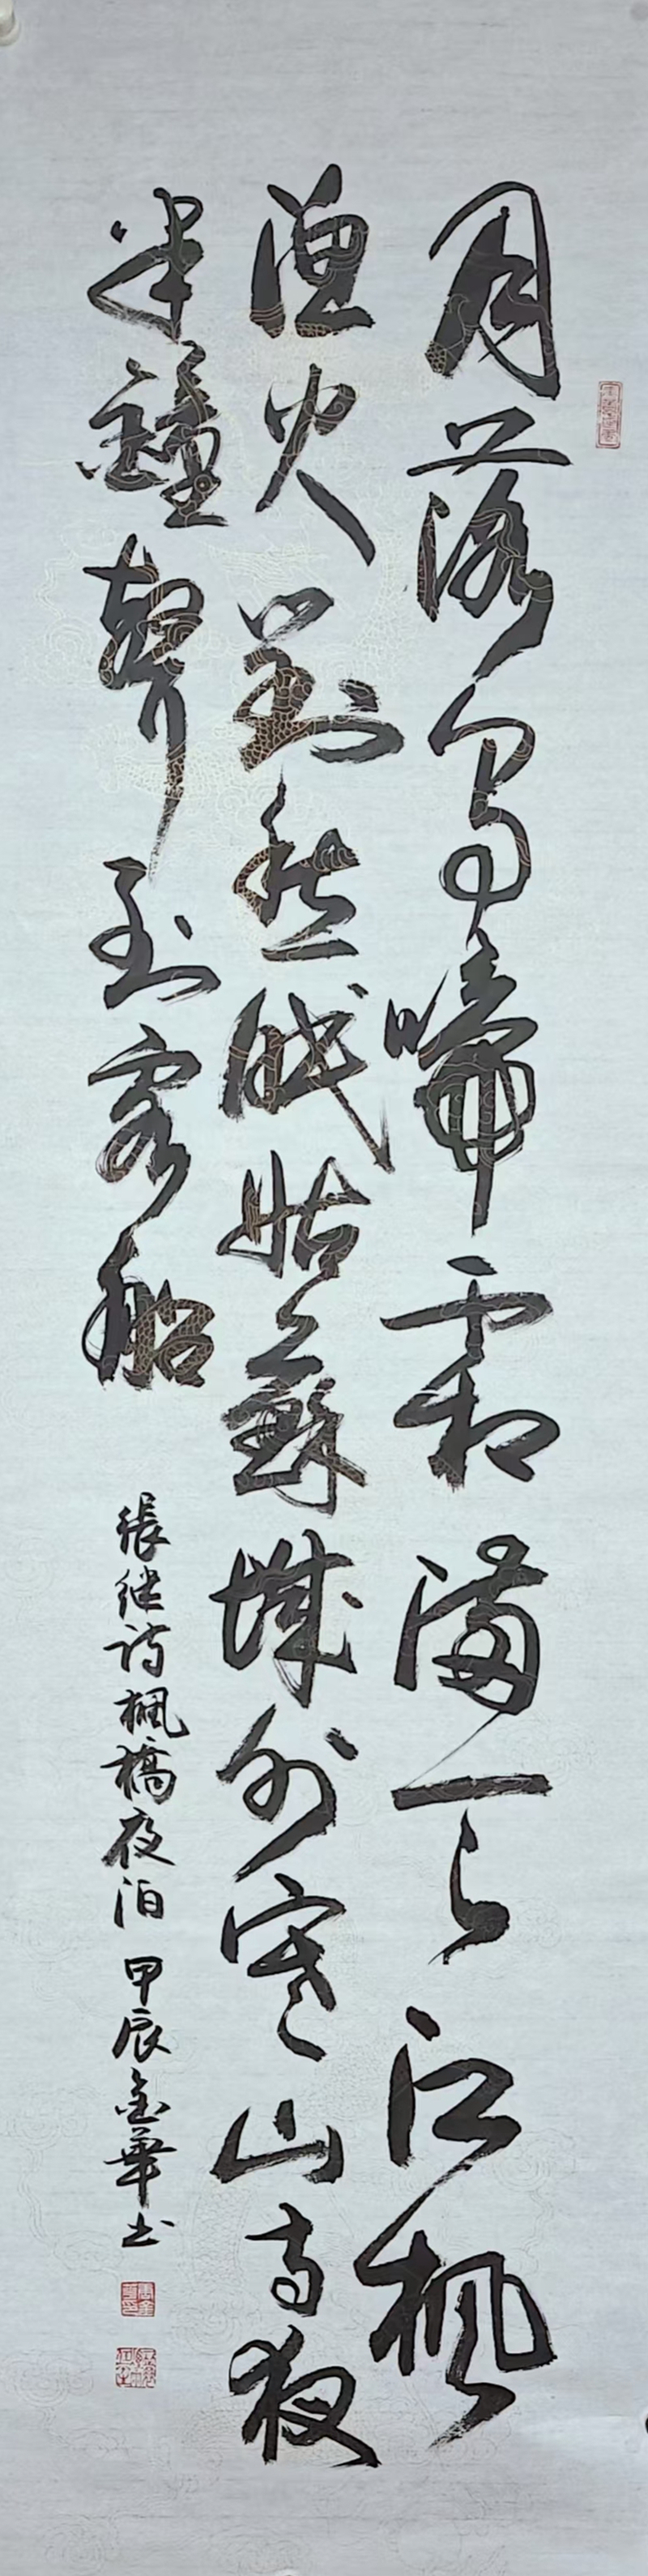 月落烏啼霜滿天江楓
漁火對愁眠姑蘇城外寒山寺夜
半鐘聲到客船
張继诗楓橋夜泊 甲辰金華书